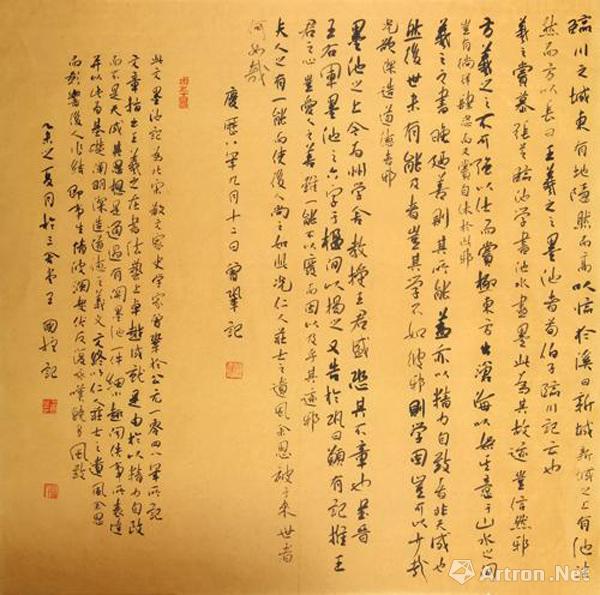 臨川之城東有地隱然而高以臨於溪曰新城新城之上有池窪
然而方以長曰王羲之之墨池者荀伯子臨川記云也
羲之嘗慕張芝臨池學書池水盡黑此為其故迹豈信然邪
方羲之之不可強以仕而嘗極東方出滄海以娛其意于山水之間
豈有徜徉肆恣而又嘗自休於此邪
羲之之書晚廼善則其所能蓋亦以精力自致者非天成也
然後世未有能及者豈其學不如彼邪則學固豈可以少哉
况欲深造道德者邪
墨池之上今為州學舍教授王君盛恐其不章也書晉
王右軍墨池之六字于楹間以揭之又告於鞏曰願有記推王
君之心豈愛人之善雖一能不以廢而因以及乎其迹邪
夫人之有一能而使後人尚之如此况仁人莊士之遺風余思被于來世者
何如哉
慶歷八年九月十二日曾鞏記
此文墨池記為北宋散文家史學家曾鞏於公元一零四八年所記
文章指出王羲之在書法藝上卓越成就是由於以精力自致
而不是天成其思想是通過有關墨池一件細小趣聞佚事所表達
并以此為基礎闡明深造道德之義文終以仁人莊士之遺風余思
而影響後人作結即事生情波瀾伏反復咏嘆頗多風致
乙未之夏月於三記
Artron.Net
雅昌艺术网